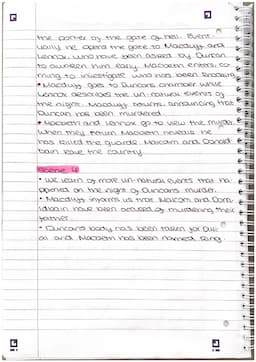 the porter of the gate of hell. Event-
ually he opens the gate to Macduff and
Lennox, who have been asked by Duncan
to awaken him early. Macbeth enters, co-
ming to investigate who has been knocking
• Macduff goes to Duncans chamber while
Lennox describes the un-natural events of
the night. Macduff returns, announcing that
Duncan has been murdered.
• Macbeth and Lennox go to view the murder.
When they return Macbeth reveals he
has killed the guards. Malcolm and Donal-
bain leave the country.
Scene 4
• We learn of more un-natural events that ha-
ppened on the night of Duncan's murder.
• Macduff informs us that Malcolm and Don-
albain have been accused of murdering their
father.
• Duncans body has been taken for buri-
al and Macbeth has been named king.